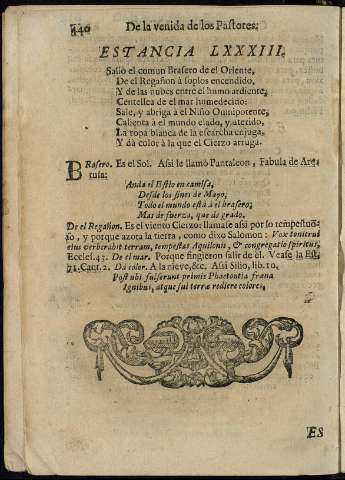 440 De la venida de los Pastores.
ESTANCIA LXXXIII.
Salió el comun Brasero de el Oriente,
De el Regañon à soplos encendido,
Y de las nubes entre el humo ardiente,
Centellea de el mar humedecido:
Sale, y abriga à el Niño Omnipotente,
Calienta à el mundo elado, y aterido,
La ropa blanca de la escarcha enjuga,
Y dà color à la que el Cierzo arruga.
BRasero. Es el Sol. Assi le llamò Pantaleon, Fabula de Are
tusa:
Anda el Estio en camisa,
Desde los fines de Mayo,
Todo el mundo està à el brasero;
Mas de fuerza, que de grado.
De el Regañon. Es el viento Cierzo: llamase assi por lo tempestuo-
so, y porque azota la tierra, como dixo Salomon: Vox tonitrui
eius verberabit terram, tempestas Aquilonis, & congregatio spiritus,
Eccles. 43. De el mar. Porque fingieron salir de èl. Vease la Est.
71. Cant. 2. Dà color. A la nieve, &c. Assi Silio, lib. 10.
Post ubi fulserunt primis Phaetontia frena
Ignibus, atque sui terræ rediere colores,
ES